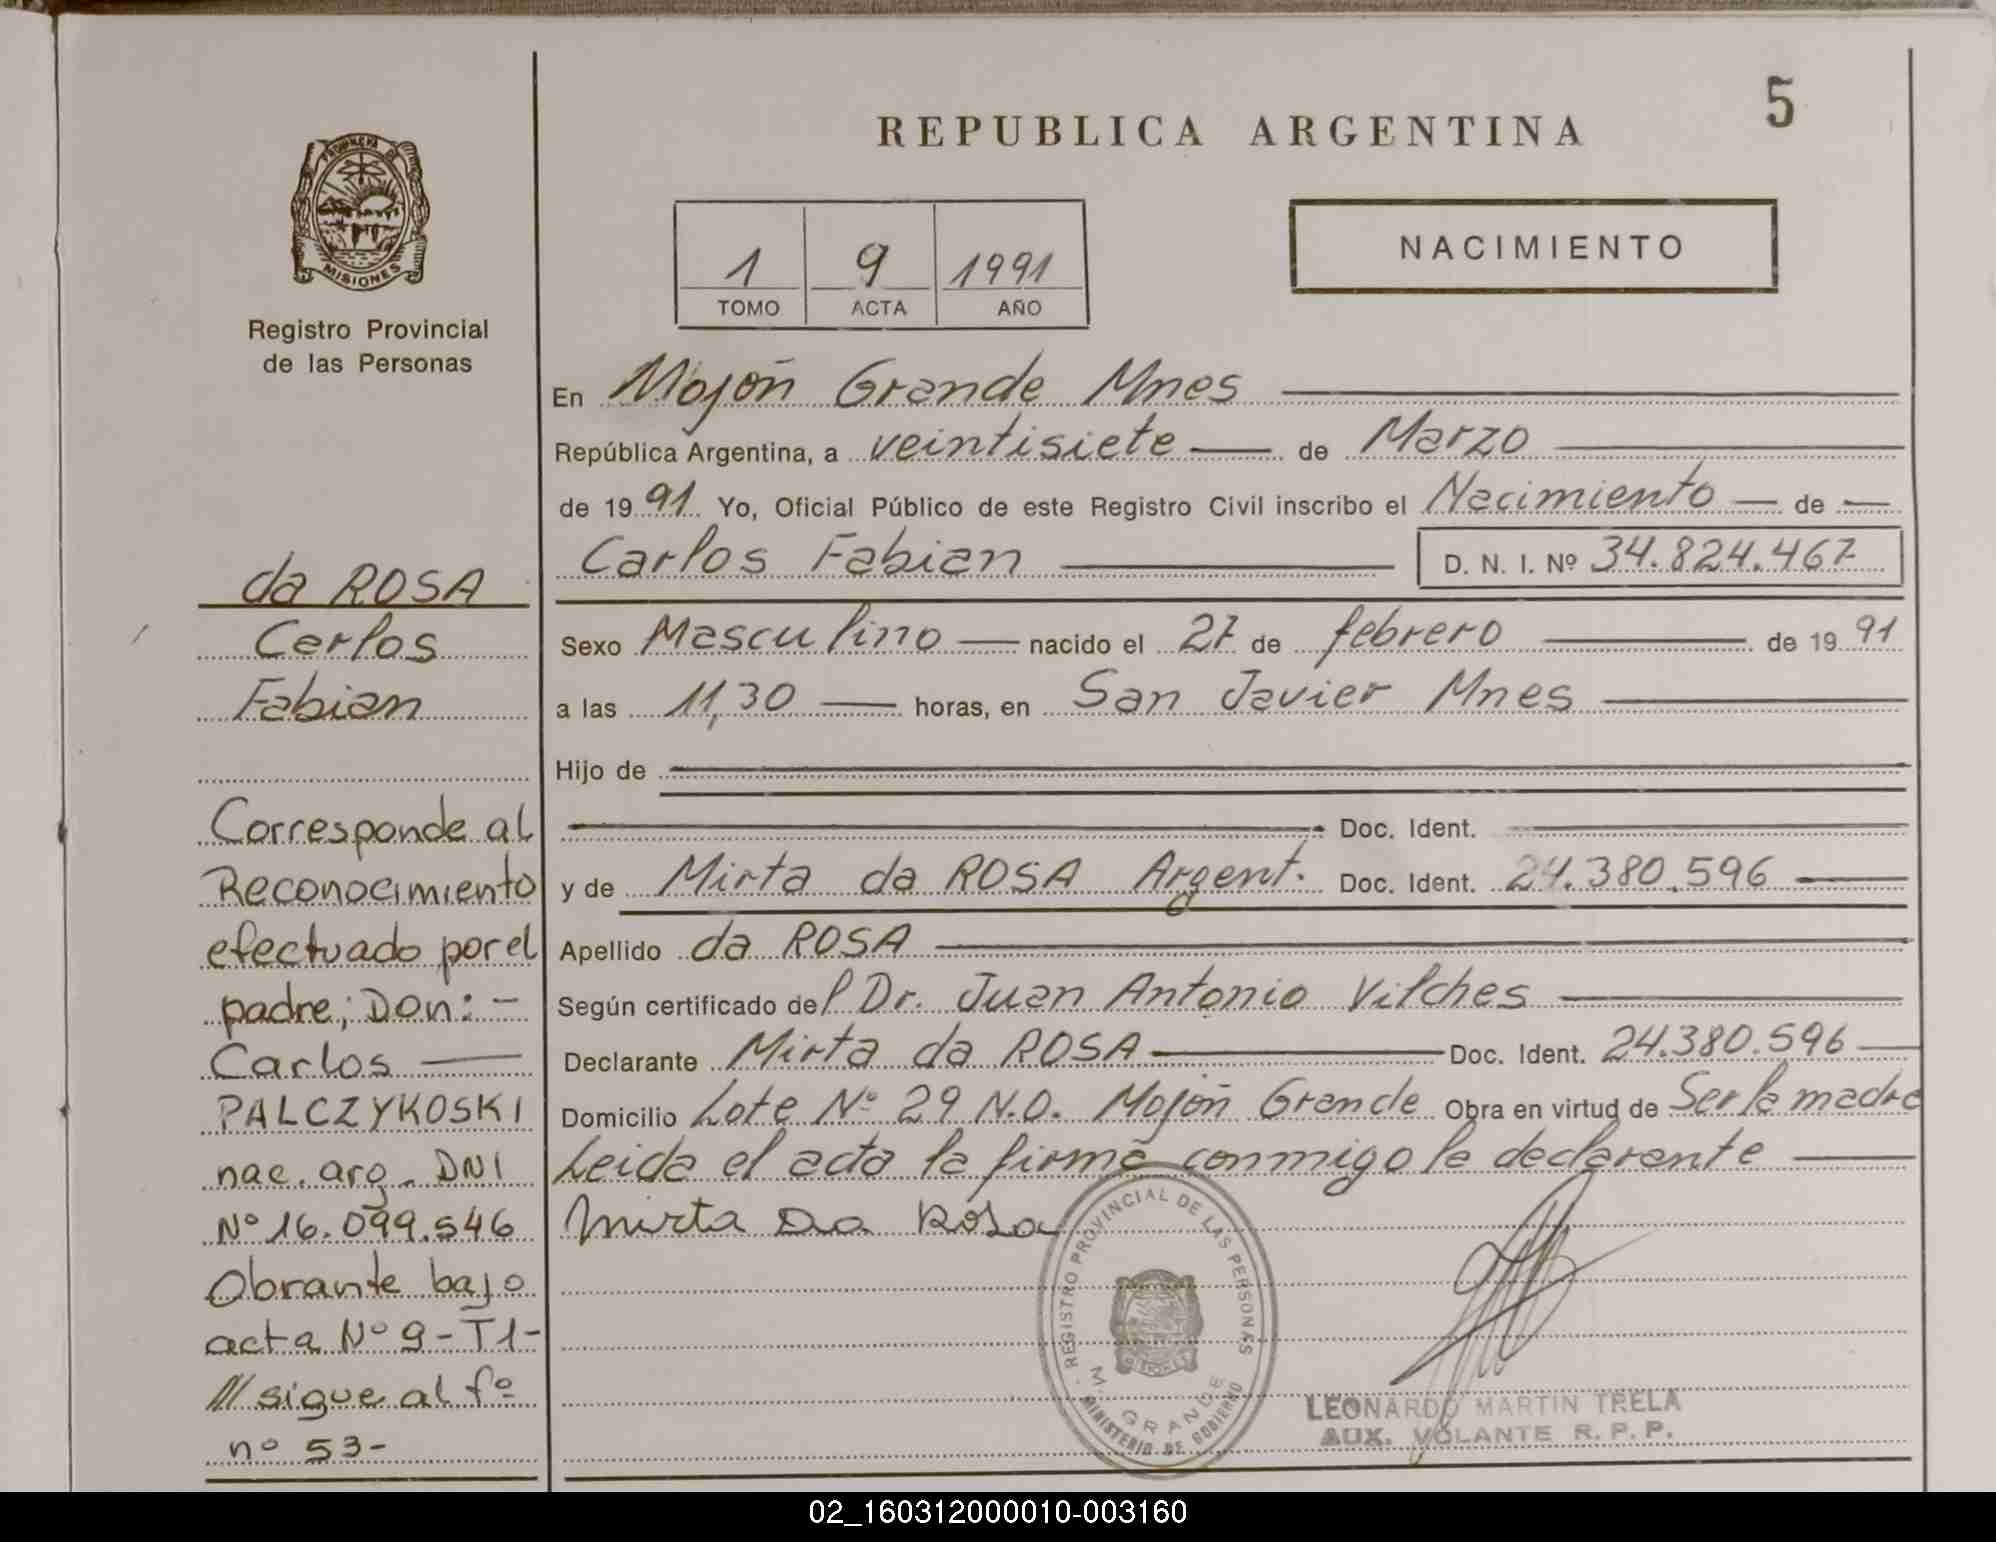 5
REPUBLICA ARGENTINA
PROVINCIA DE
MISIONES
Registro Provincial
de las Personas
1 9 1991
TOMO ACTA AÑO
NACIMIENTO
En Mojón Grande Mnes
República Argentina, a veintisiete de Marzo
de 1991 Yo, Oficial Público de este Registro Civil inscribo el Nacimiento de
Carlos Fabian D. N. I. Nº 34.824.467
Sexo Masculino nacido el 27 de febrero de 1991
a las 11,30 horas, en San Javier Mnes
Hijo de
Doc. Ident.
y de Mirta da ROSA Argent. Doc. Ident. 24.380.596
Apellido da ROSA
Según certificado del Dr. Juan Antonio Vilches
Declarante Mirta da ROSA Doc. Ident. 24.380.596
Domicilio Lote Nº 29 N.O. Mojón Grande Obra en virtud de Ser la madre
Leida el acta la firma conmigo la declarante
Mirta Da Rosa
REGISTRO PROVINCIAL DE LAS PERSONAS
M. GRANDE
MINISTERIO DE GOBIERNO
LEONARDO MARTIN TRELA
AUX. VOLANTE R. P. P.
da ROSA
Carlos
Fabian
Corresponde al
Reconocimiento
efectuado por el
padre; Don: -
Carlos
PALCZYKOSKI
nac. arg. DNI
Nº 16.099.546
Obrante bajo
acta Nº 9-T1-
/// sigue al fº
nº 53-
02_160312000010-003160